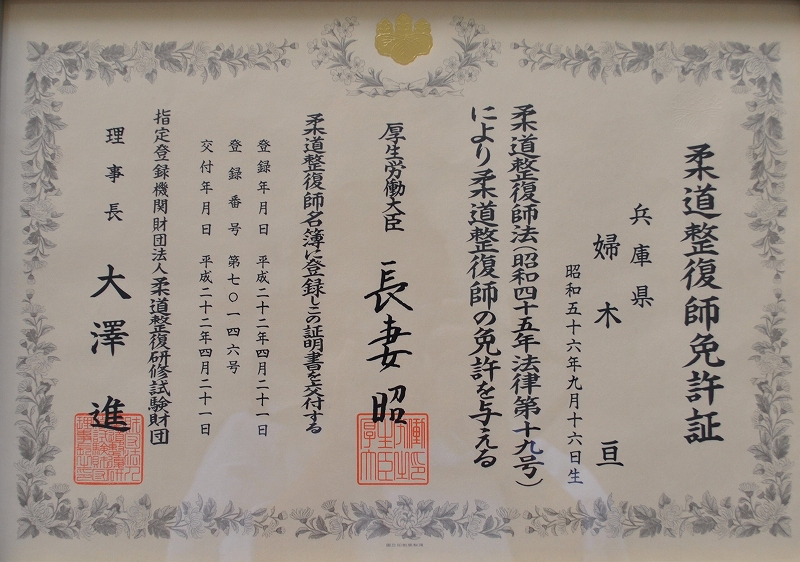 柔道整復師免許証
兵庫県
婦木亘
昭和五十六年九月十六日生
柔道整復師法（昭和四十五年法律第十九号）
により柔道整復師の免許を与える
厚生労働大臣 長妻昭
柔道整復師名簿に登録しこの証明書を交付する
登録年月日 平成二十二年四月二十一日
登録番号 第七〇一四六号
交付年月日 平成二十二年四月二十一日
指定登録機関財団法人柔道整復研修試験財団
理事長 大澤進